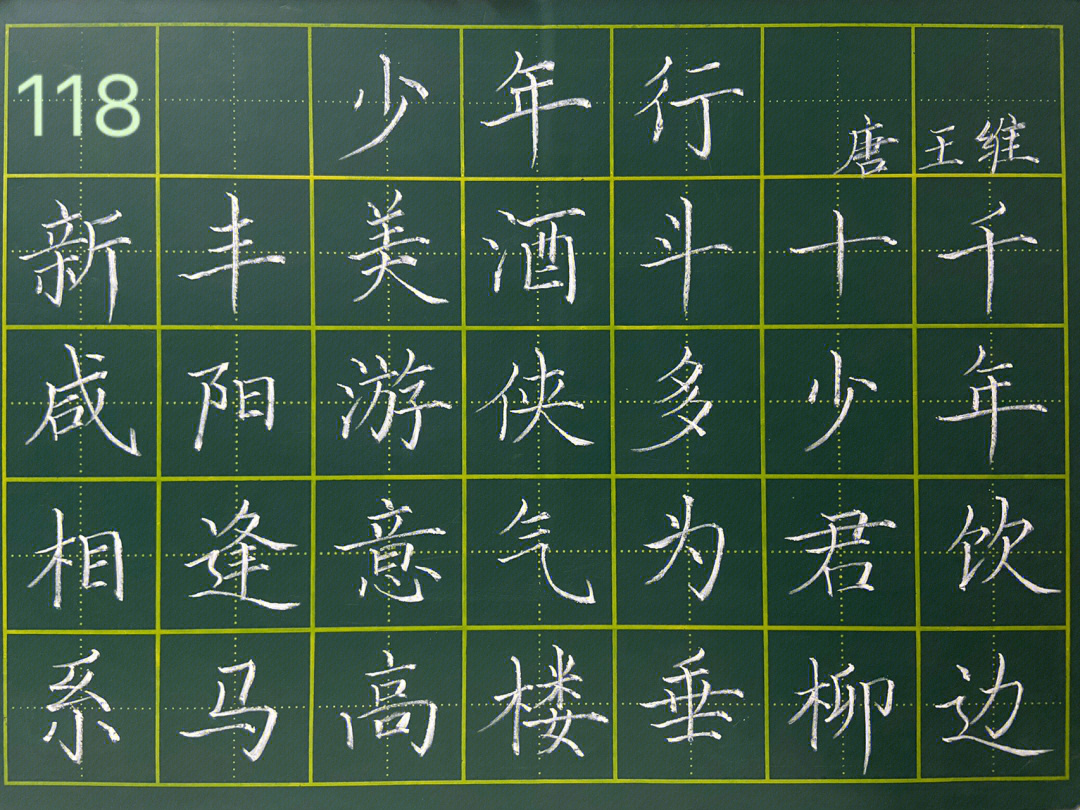 118 少年行 唐 王维
新丰美酒斗十千
咸阳游侠多少年
相逢意气为君饮
系马高楼垂柳边